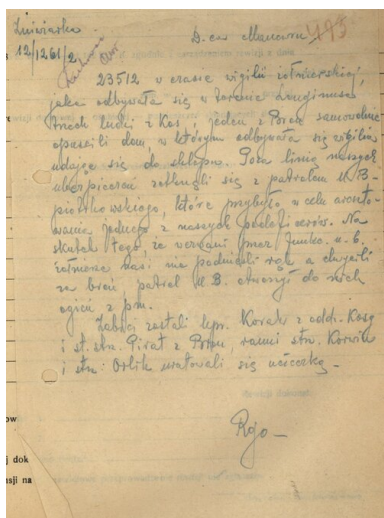 Żniwiarka
12/1261/2
D-ca Mauera
495
23512 w czasie wigilii żołnierskiej,
jaka odbywała się w rejonie Longinusa
trzech ludzi z Kos i jeden z Poraa samowolnie
opuścili dom, w którym odbywała się wigilia,
udając się do sklepu. Poza linią naszych
ubezpieczeń zetknęli się z patrolem U.B-
piotrkowskiego, które przybyło w celu areszto-
wania jednego z naszych podoficerów. Na
skutek tego, że wezwani przez funkc. u.b.
żołnierze nasi nie podnieśli rąk a chwycili
za broń, patrol U.B. otworzył do nich
ognia z pm.
Zabici zostali kpr. Korak z oddz. Kosą
i st. strz. Pirat z Poraa, ranni strz. Korwin
i strz. Orlik uratowali się ucieczką.-
Rojo-
ow
j dok
nsji na